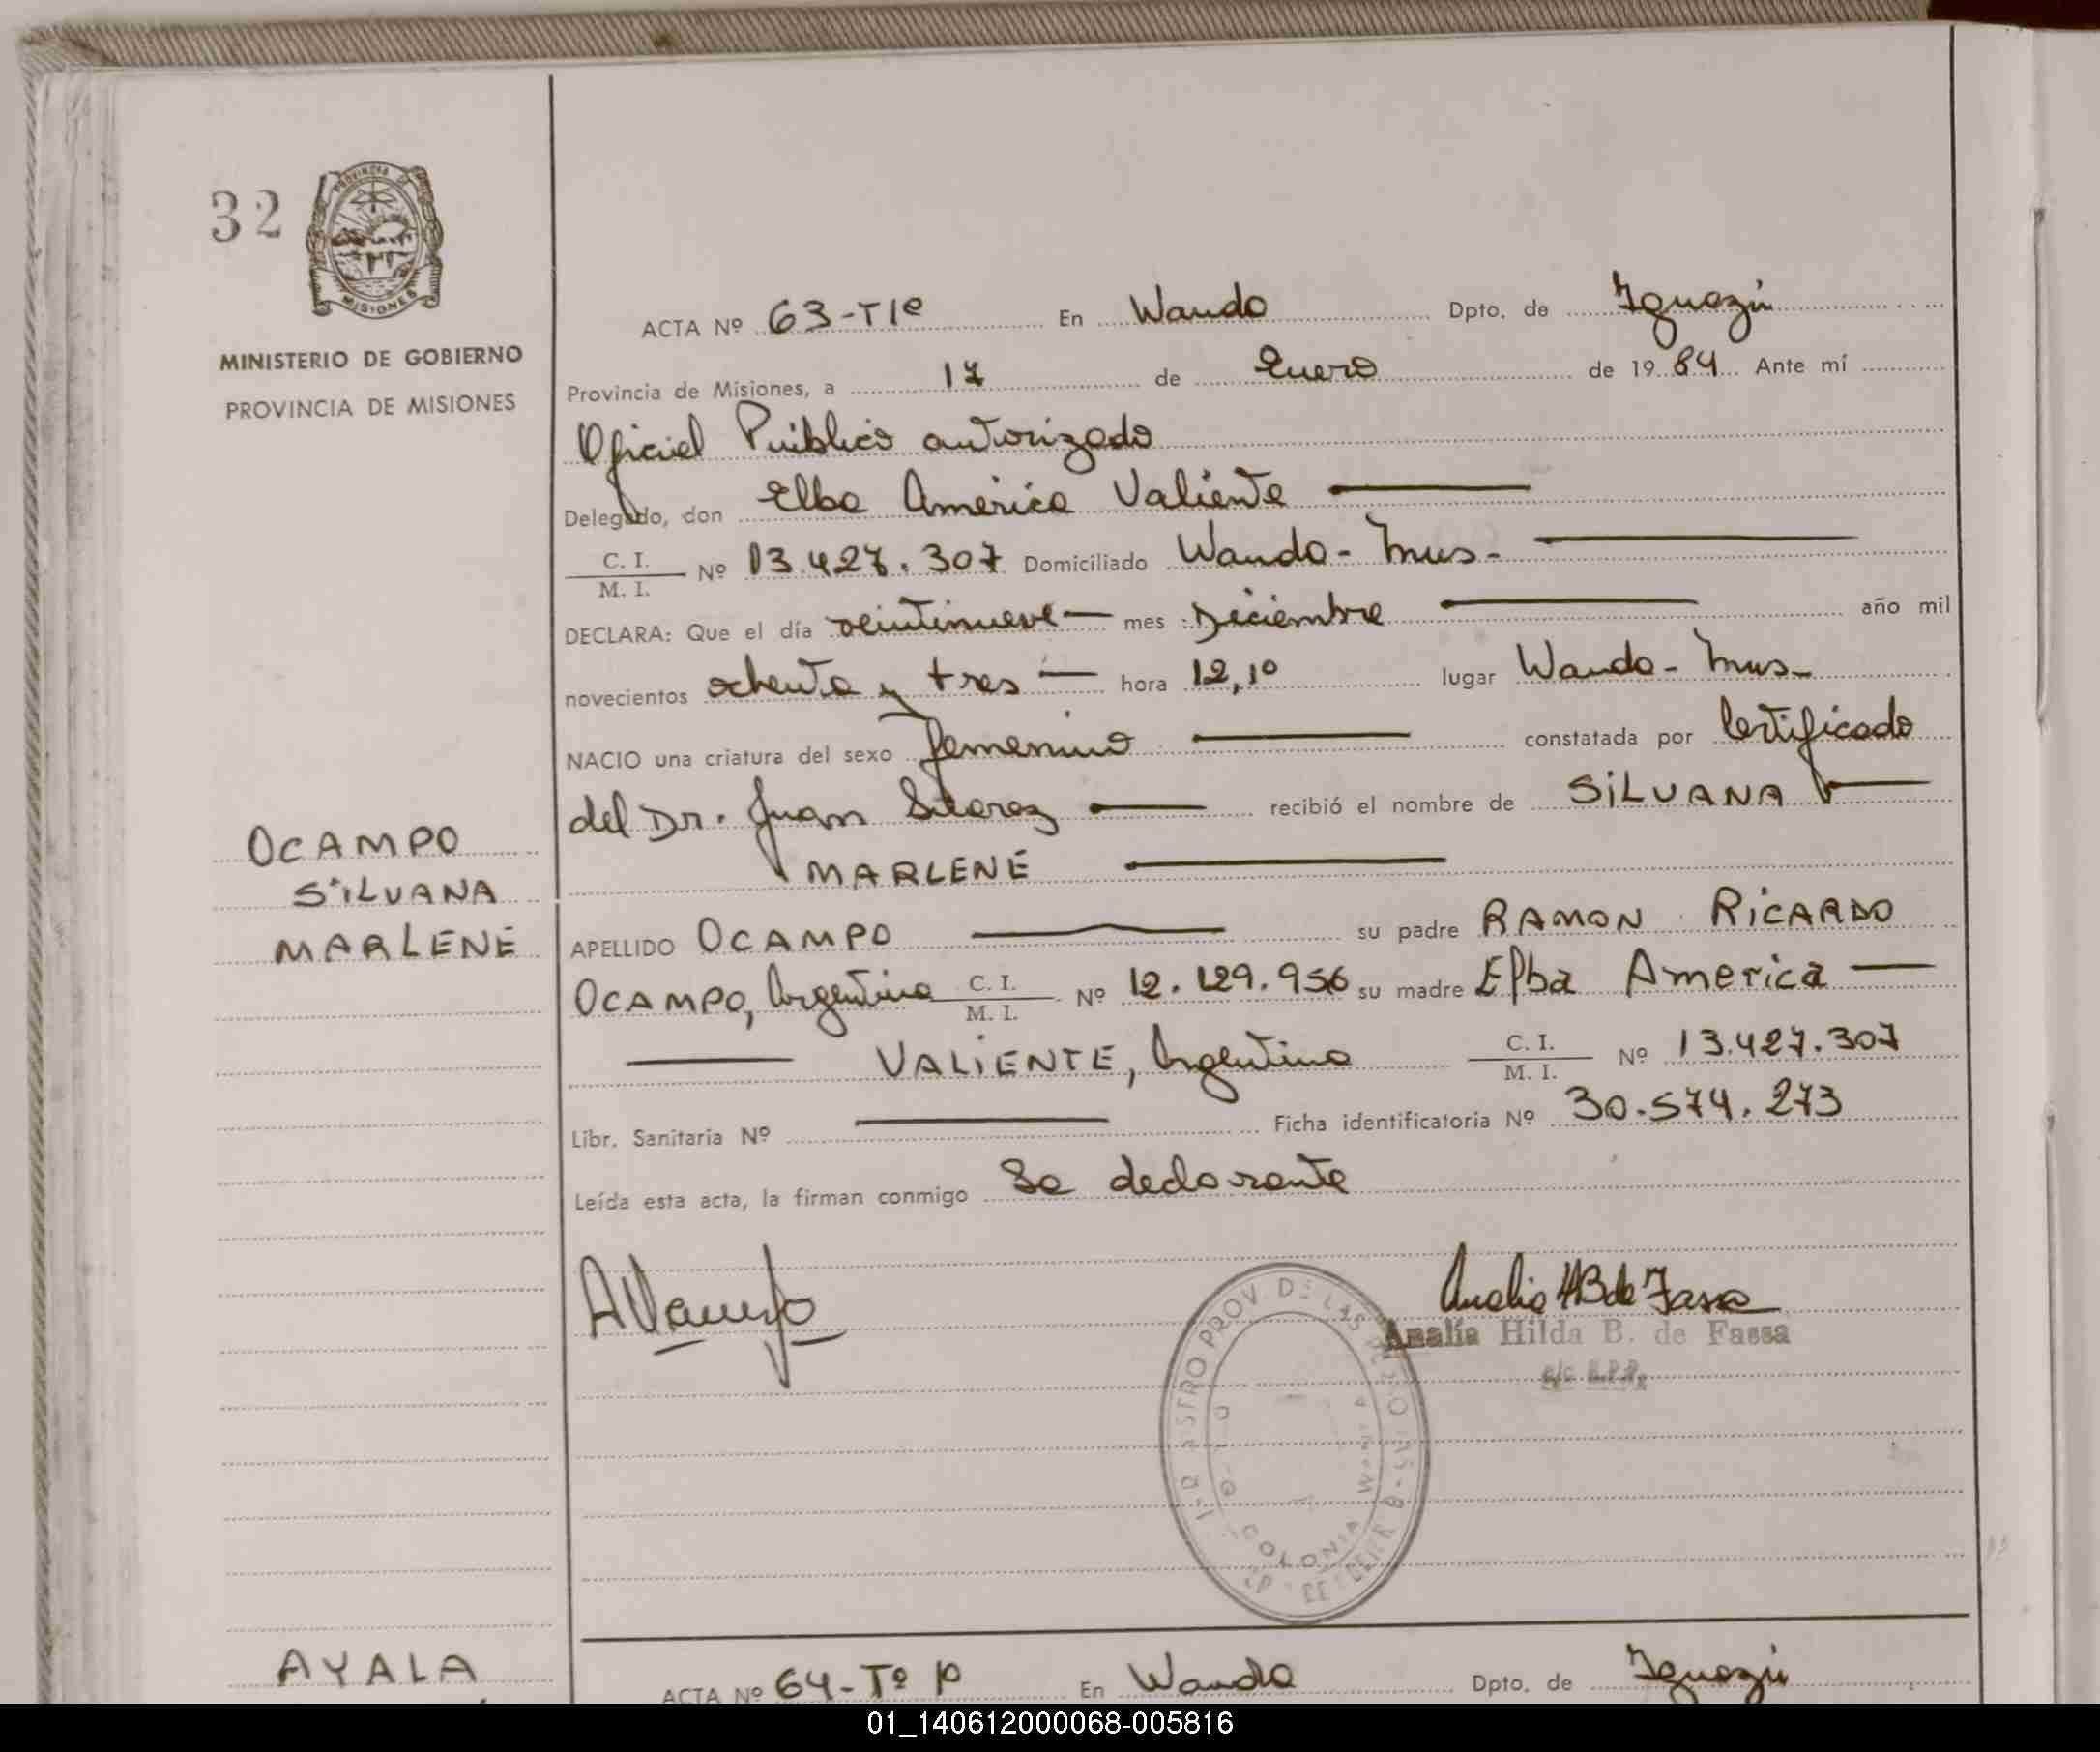 32
PROVINCIA DE
MISIONES
MINISTERIO DE GOBIERNO
PROVINCIA DE MISIONES
ACTA Nº 63-T1º En Wanda Dpto. de Iguazú
Provincia de Misiones, a 17 de Enero de 1984 Ante mí
Oficial Público autorizado
Delegado, don Elba América Valiente
C. I. / M. I. Nº 13.427.307 Domiciliado Wanda - Mnes -
DECLARA: Que el día veintinueve mes : Diciembre año mil
novecientos ochenta y tres hora 12,10 lugar Wanda - Mnes -
NACIO una criatura del sexo femenino constatada por Certificado
del Dr. Juan Suarez recibió el nombre de SiLVANA
MARLENE
OCAMPO
SiLVANA
MARLENE
APELLIDO OCAMPO su padre RAMON RiCARDO
OCAMPO, Argentino C. I. / M. I. Nº 12.129.956 su madre Elba America
VALiENTE, Argentina C. I. / M. I. Nº 13.427.307
Libr. Sanitaria Nº Ficha identificatoria Nº 30.574.273
Leída esta acta, la firman conmigo la declarante
Analia HB de Fassa
Analía Hilda B. de Fassa
PROV. DE LAS
COLONIA WANDA
AYALA
ACTA Nº 64-Tº 1º En Wanda Dpto. de Iguazú
01_140612000068-005816